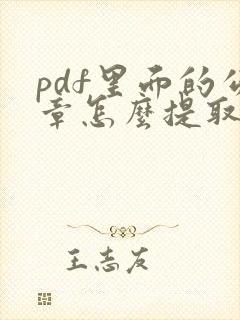 pdf里面的公
章怎麽提取
王志友